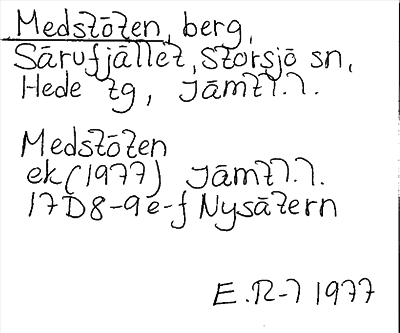 Medstöten, berg,
Särvfjället, Storsjö sn,
Hede tg, Jämtl.l.
Medstöten
ek (1977) Jämtl.l.
17D8-9e-f Nysätern
E.R-l 1977